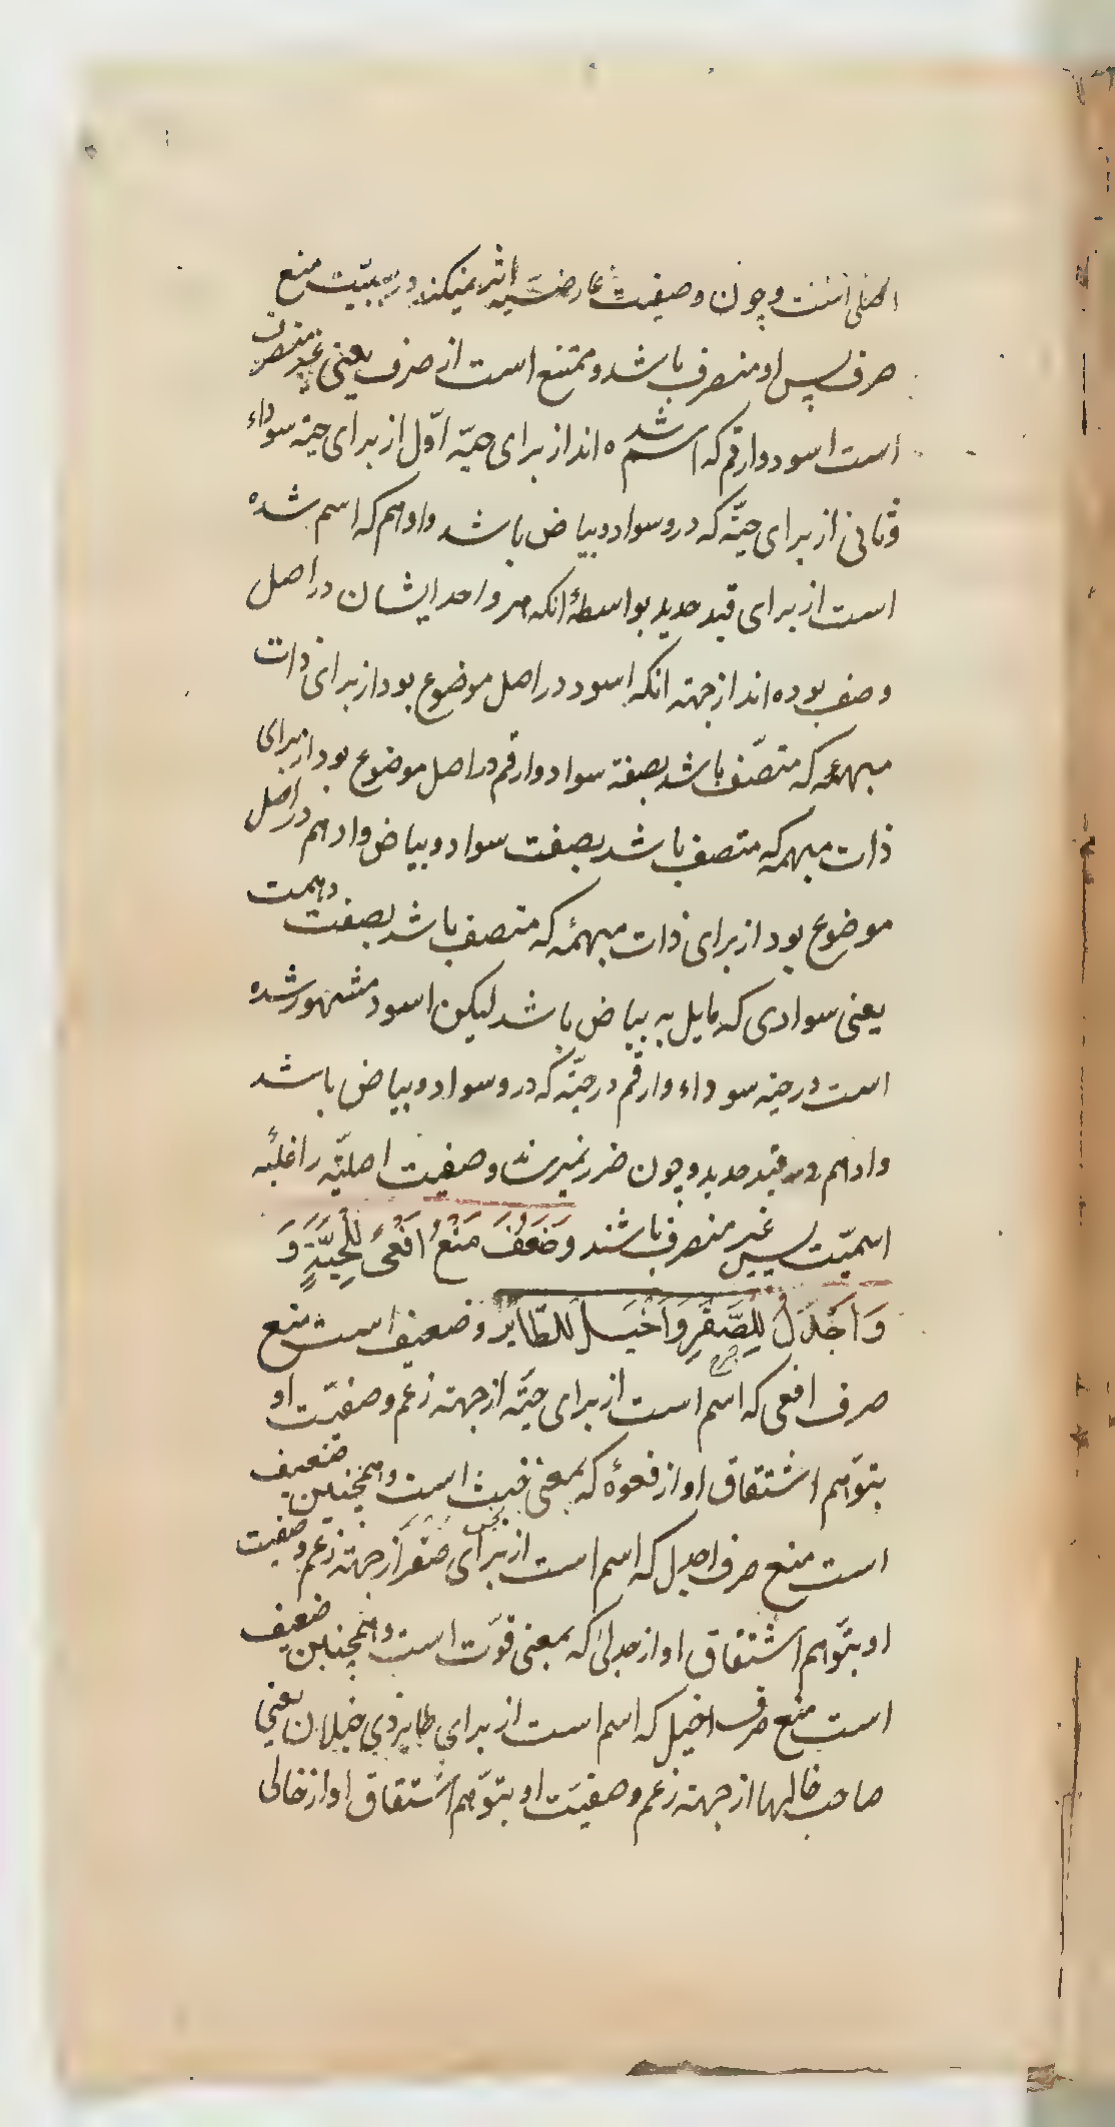 اصلی است و چون وصفیت عارضیه اثر نمیکند در سببیّت منع
صرف پس او منصرف باشد و ممتنع است از صرف یعنی غیر منصرف
است اسود و ارقم که اسم شده اند از برای حیّه اوّل از برای حیّه سوداء
و ثانی از برای حیّه که درو سواد و بیاض باشد و ادهم که اسم شده
است از برای قید حدید بواسطهٔ انکه هر واحد ایشان در اصل
وصف بوده اند از جهته انکه اسود در اصل موضوع بود از برای ذات
مبهمه که متصّف باشد بصفة سواد و ارقم در اصل موضوع بود از برای
ذات مبهمه که متصف باشد بصفت سواد و بیاض و ادهم در اصل
موضوع بود از برای ذات مبهمهٔ که متصف باشد بصفت دهمت
یعنی سوادی که مایل به بیاض باشد لیکن اسود مشهور شده
است در حیّه سوداء و ارقم در حیّه که درو سواد و بیاض باشد
و ادهم در قید حدید و چون ضرر نمیرساند وصفیت اصلیّه را غلبهٔ
اسمیّت پس غیر منصرف باشند وَضَعُفَ مَنْعُ اَفْعىً لِلْحَيَّةِ وَ
وَاَجْدَلٌ لِلصَّقْرِ وَاَخْيَلَ لِلطّاير و ضعیف است منع
صرف افعی که اسم است از برای حیّه از جهته زعم وصفیّت او
بتوّهم اشتقاق او از فعوهٔ که بمعنی خبث است و همچنین ضعیف
است منع صرف اجدل که اسم است از برای صقر از جهته زعم وصفیت
او بتوّهم اشتقاق او از جدلی که بمعنی قوّت است و همچنین ضعیف
است منع صرف اخیل که اسم است از برای طایر ذی خیلان یعنی
صاحب خالها از جهته زعم وصفیّت او بتوّهم اشتقاق او از خالی